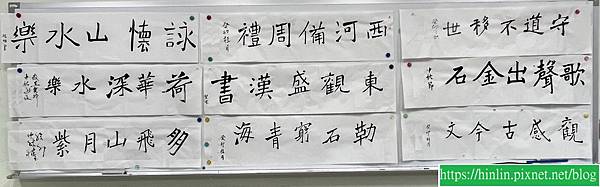 守道不移世
西河備周禮
詠懷山水樂
歌聲出金石
中秋節
東觀盛漢書
荷華深水樂
觀感古今文
勒石窮青海
多飛山月紫
https://hinlin.pixnet.net/blog